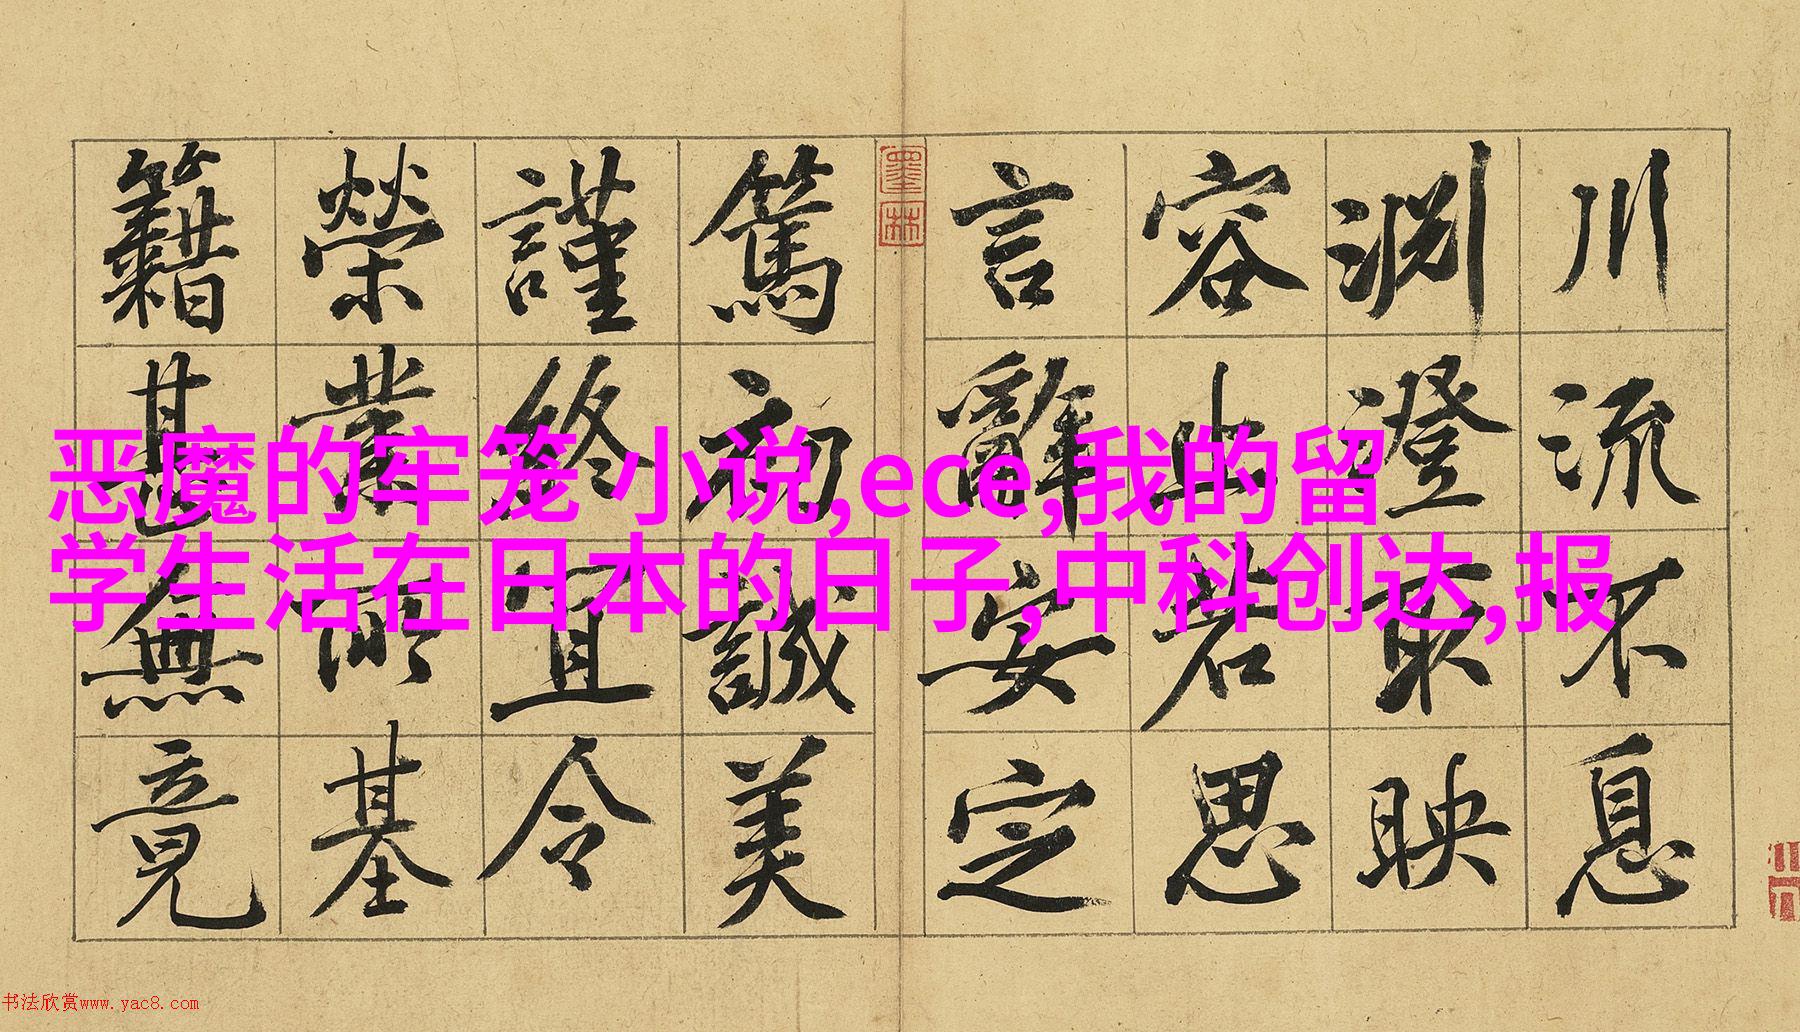 川流不息
淵澄取映
容止若思
言辭安定
篤初誠美
謹終宜令
榮業所基
籍甚無竟
墨林
恶魔的牢笼 小说,ece,我的留
学生活在日本的日子,中科创达,报
书法欣赏www.yac8.com